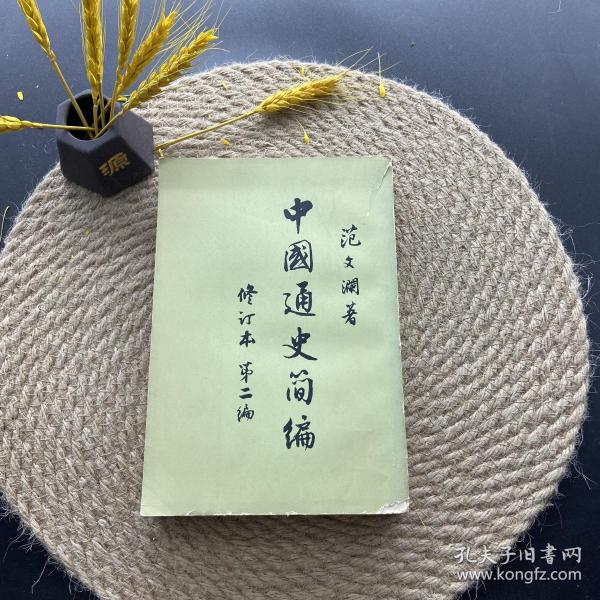 范文瀾著
中國通史简编
修订本 第二编
源
孔夫子旧書网
www.kongfz.com